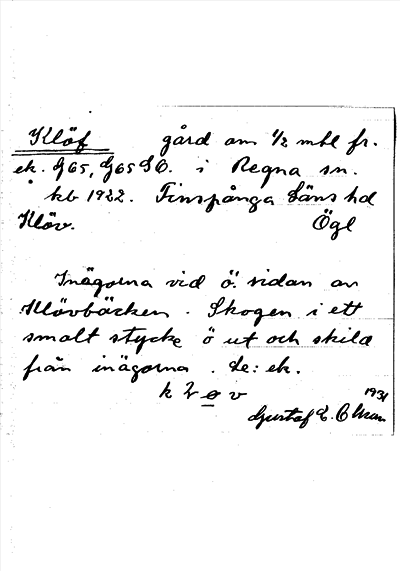 Klöf gård om 1/2 mtl fr.
ek. G65, G65 SO. i Regna sn.
kb 1922. Finspånga Läns hd
Klöv. Ögl
Inägorna vid ö. sidan av
Klövbäcken. Skogen i ett
smalt stycke ö ut och skild
från inägorna. Le: ek.
k l ø v
1931
Gustaf E.